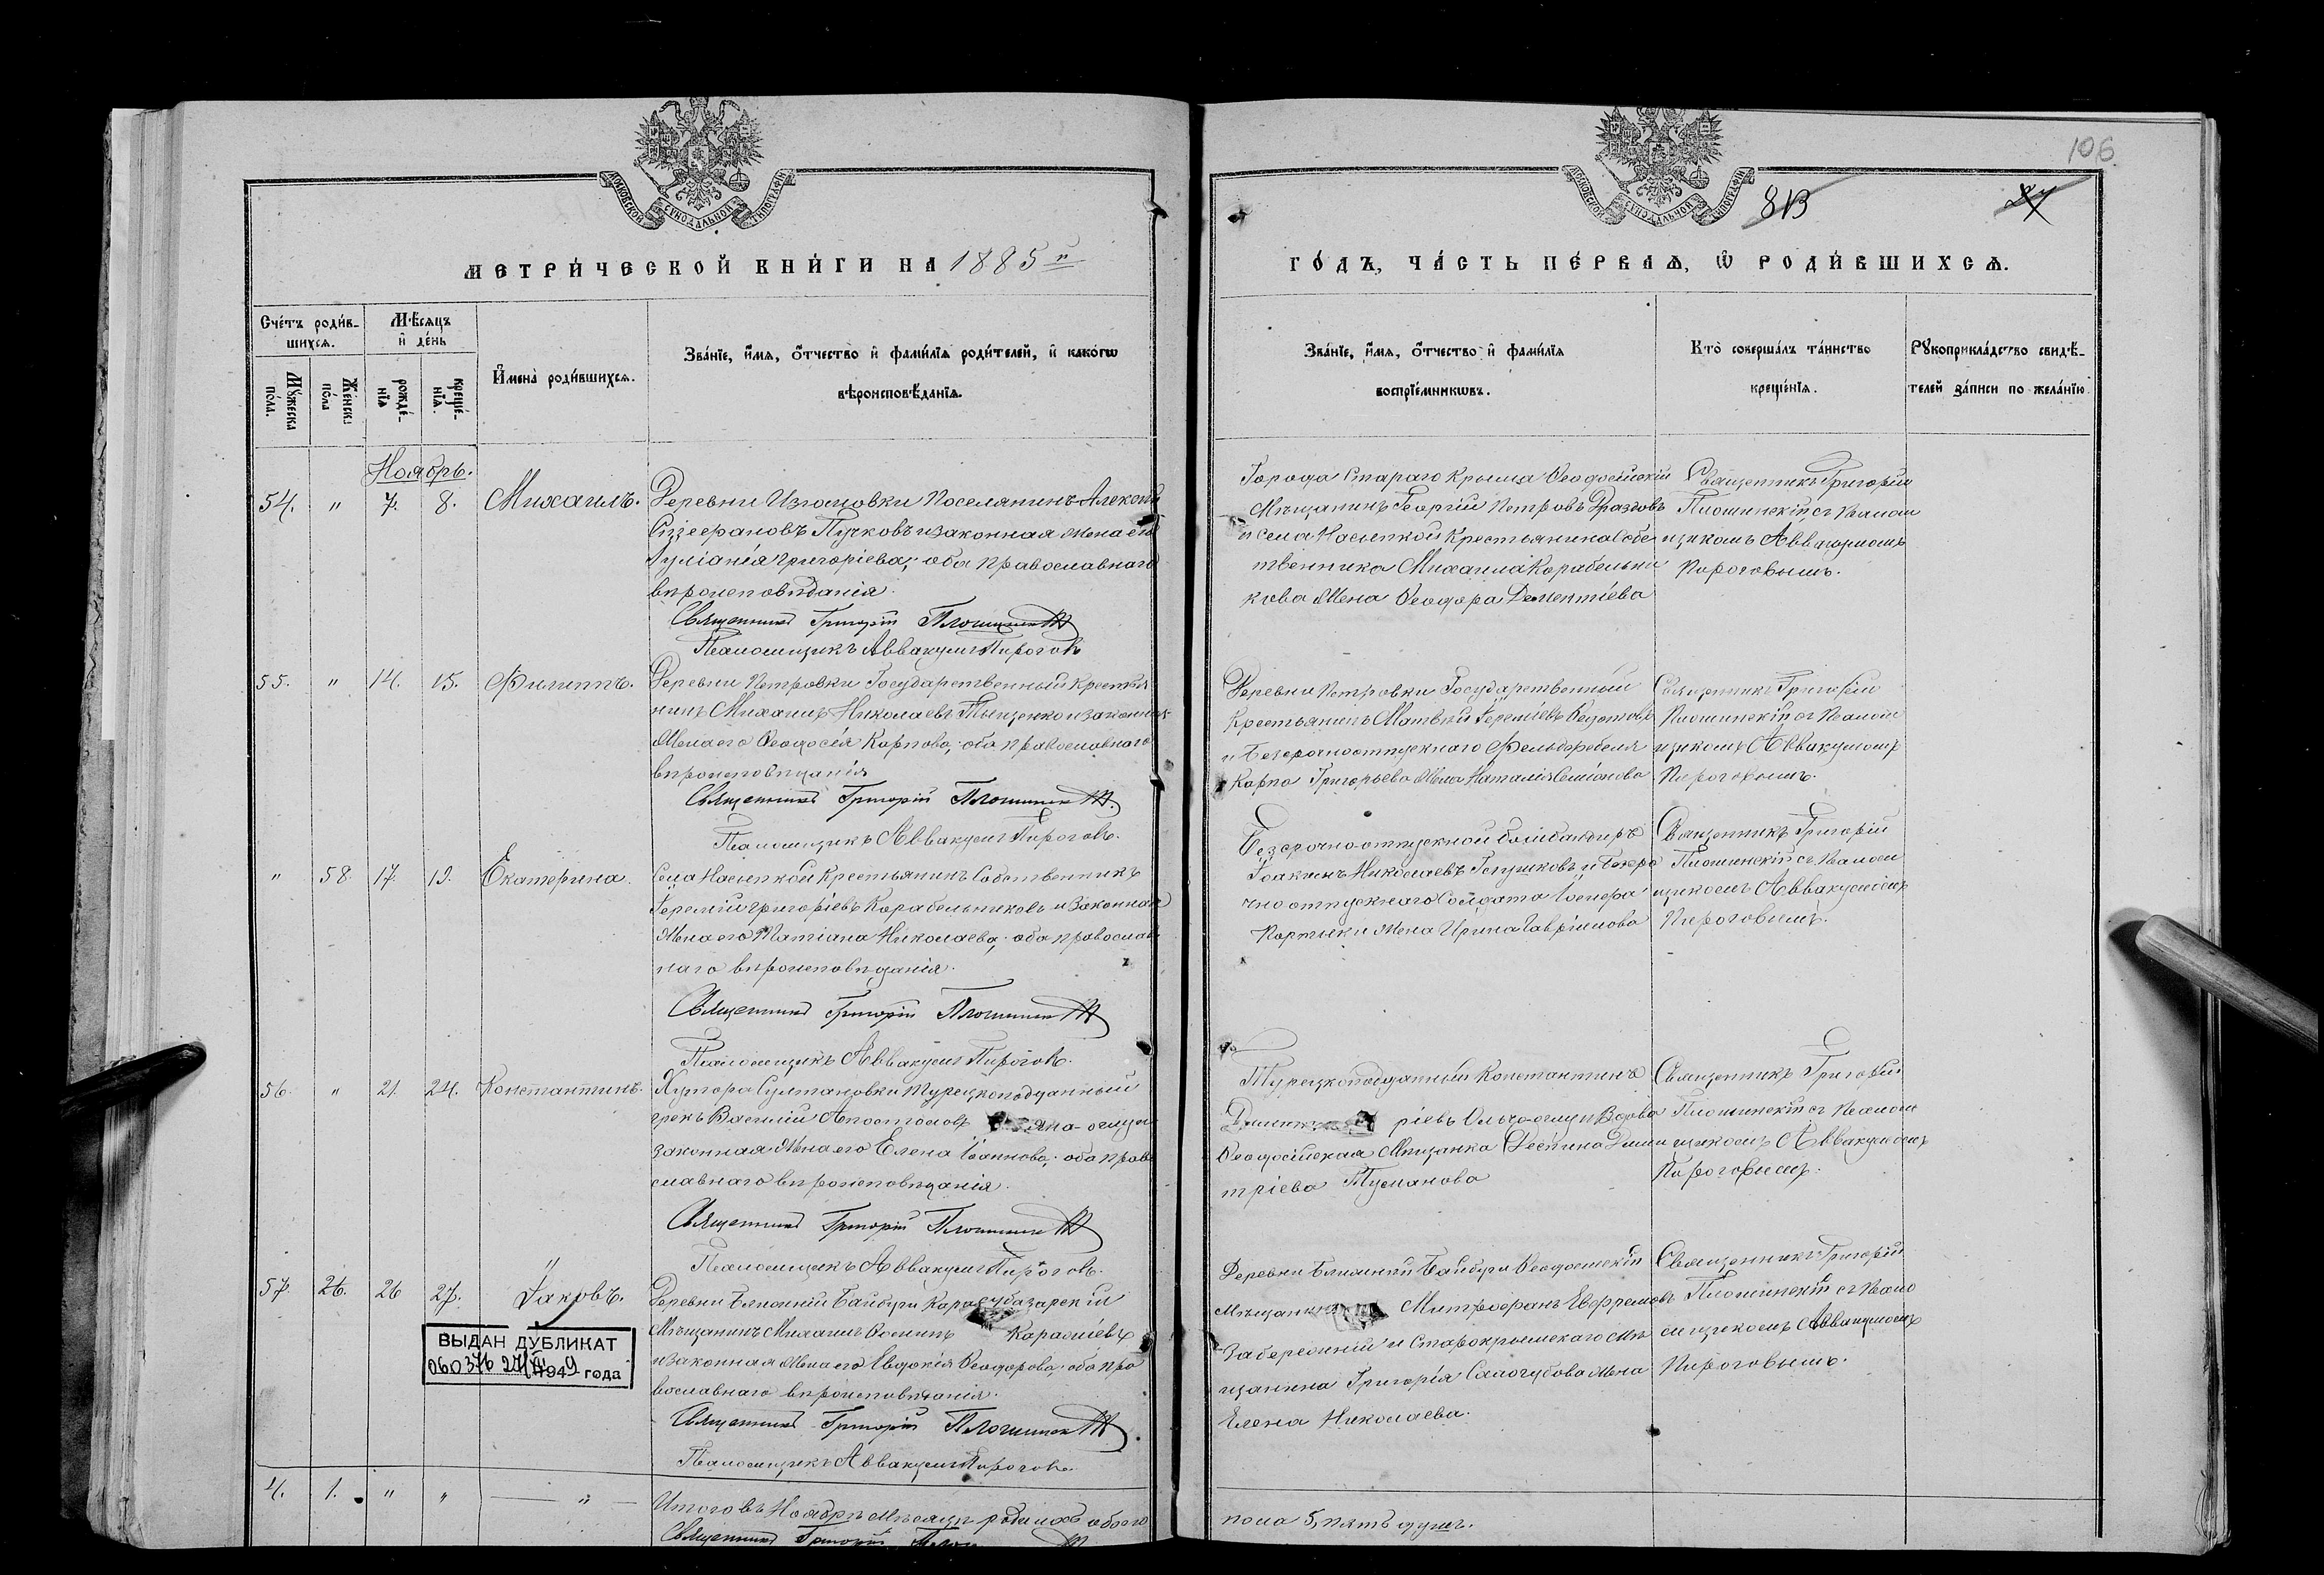 106
813
МЕТРИЧЕСКОЙ КНИГИ НА 1885й
ГОДЪ, ЧАСТЬ ПЕРВАЯ, Ѡ РОДИВШИХСЯ.
Счетъ родив-
шихся.
Мужеска пола.
Женска пола
Мѣсяцъ
и день
рожде-
нія
креще-
нія.
Имена родившихся.
Званіе, имя, отчество и фамилія родителей, и какогѡ
вѣроисповѣданія.
Званіе, имя, отчество и фамилія
воспріемникѡвъ.
Кто совершалъ таинство
крещенія.
Рукоприкладство свидѣ-
телей записи по желанію
Ноябрь.
54. " 7. 8. Михаилъ.
Деревни Изюмовки Поселянинъ Алексѣй
Пучковъ и законная жена его
Іуліанія Григоріева, оба православнаго
вѣроисповѣданія.
Священникъ Григорій Плошинскій
Псаломщикъ Аввакумъ Пироговъ
Города Стараго Крыма Ѳеодосійскій
Мѣщанинъ Георгій Петровъ Драздовъ
и села Насыпкой Крестьянина Собс
твенника Михаила Корабельни
кова Жена Ѳеодора Дементіева
Священникъ Григорій
Плошинскій съ Псалом
щикомъ Аввакумомъ
Пироговымъ.
55. " 14. 15. Филиппъ.
Деревни Петровки Государственный Крестья
нинъ Михаилъ Николаевъ Тыщенко и законная
Жена его Ѳеодосія Карпова, оба православнаго
вѣроисповѣданія
Священникъ Григорій Плошинскій
Псаломщикъ Аввакумъ Пироговъ.
Деревни Петровки Государственный
Крестьянинъ Матвѣй Іереміевъ
и безсрочноотпускнаго Фельдфебеля
Карпа Григорьева Жена Наталія Симіонова
Священникъ Григорій
Плошинскій съ Псалом
щикомъ Аввакумомъ
Пироговымъ.
" 58 17. 19. Екатерина.
Села Насыпкой Крестьянинъ Собственникъ
Іеремій Григоріевъ Корабельниковъ и Законная
Жена его Татіана Николаева, оба православ
наго вѣроисповѣданія.
Священникъ Григорій Плошинскій
Псаломщикъ Аввакумъ Пироговъ.
Безсрочноотпускной бомбандиръ
Іоакимъ Николаевъ Голушковъ и Безсро
чноотпускнаго Солдата Іосифа
Жена Ирина Гавріилова
Священникъ Григорій
Плошинскій съ Псалом
щикомъ Аввакумомъ
Пироговымъ.
56. " 21. 24. Константинъ.
Хутора Султановки Турецкоподданный
грекъ Василій Апостоловъ
законная Жена его Елена Іоаннова, оба право
славнаго вѣроисповѣданія.
Священникъ Григорій Плошинскій
Псаломщикъ Аввакумъ Пироговъ.
Турецкоподданный Константинъ
ріевъ и Вдова
Ѳеодосійская Мѣщанка Деспина Дими
тріева Туманова
Священникъ Григорій
Плошинскій съ Псалом
щикомъ Аввакумомъ
Пироговымъ.
57. 26. 26 27. Іаковъ.
Деревни Ближній Байбуги Карасубазарскій
Мѣщанинъ Михаилъ
и законная Жена его Евдокія Ѳеодорова, оба пра
вославнаго вѣроисповѣданія.
Священникъ Григорій Плошинскій
Псаломщикъ Аввакумъ Пироговъ.
ВЫДАН ДУБЛИКАТ
1949 года
Деревни Ближній Байбуги Ѳеодосійскій
Мѣщанинъ Митрофанъ Евфремовъ
и Старокрымскаго Мѣ
щанина Григорія Самогубова Жена
Елена Николаева.
Священникъ Григорій
Плошинскій съ Псало
мщикомъ Аввакумомъ
Пироговымъ.
4. 1. " " "
Итого въ Ноябрѣ мѣсяцѣ родилось обоего
пола 5, пять душъ.
Священникъ Григорій